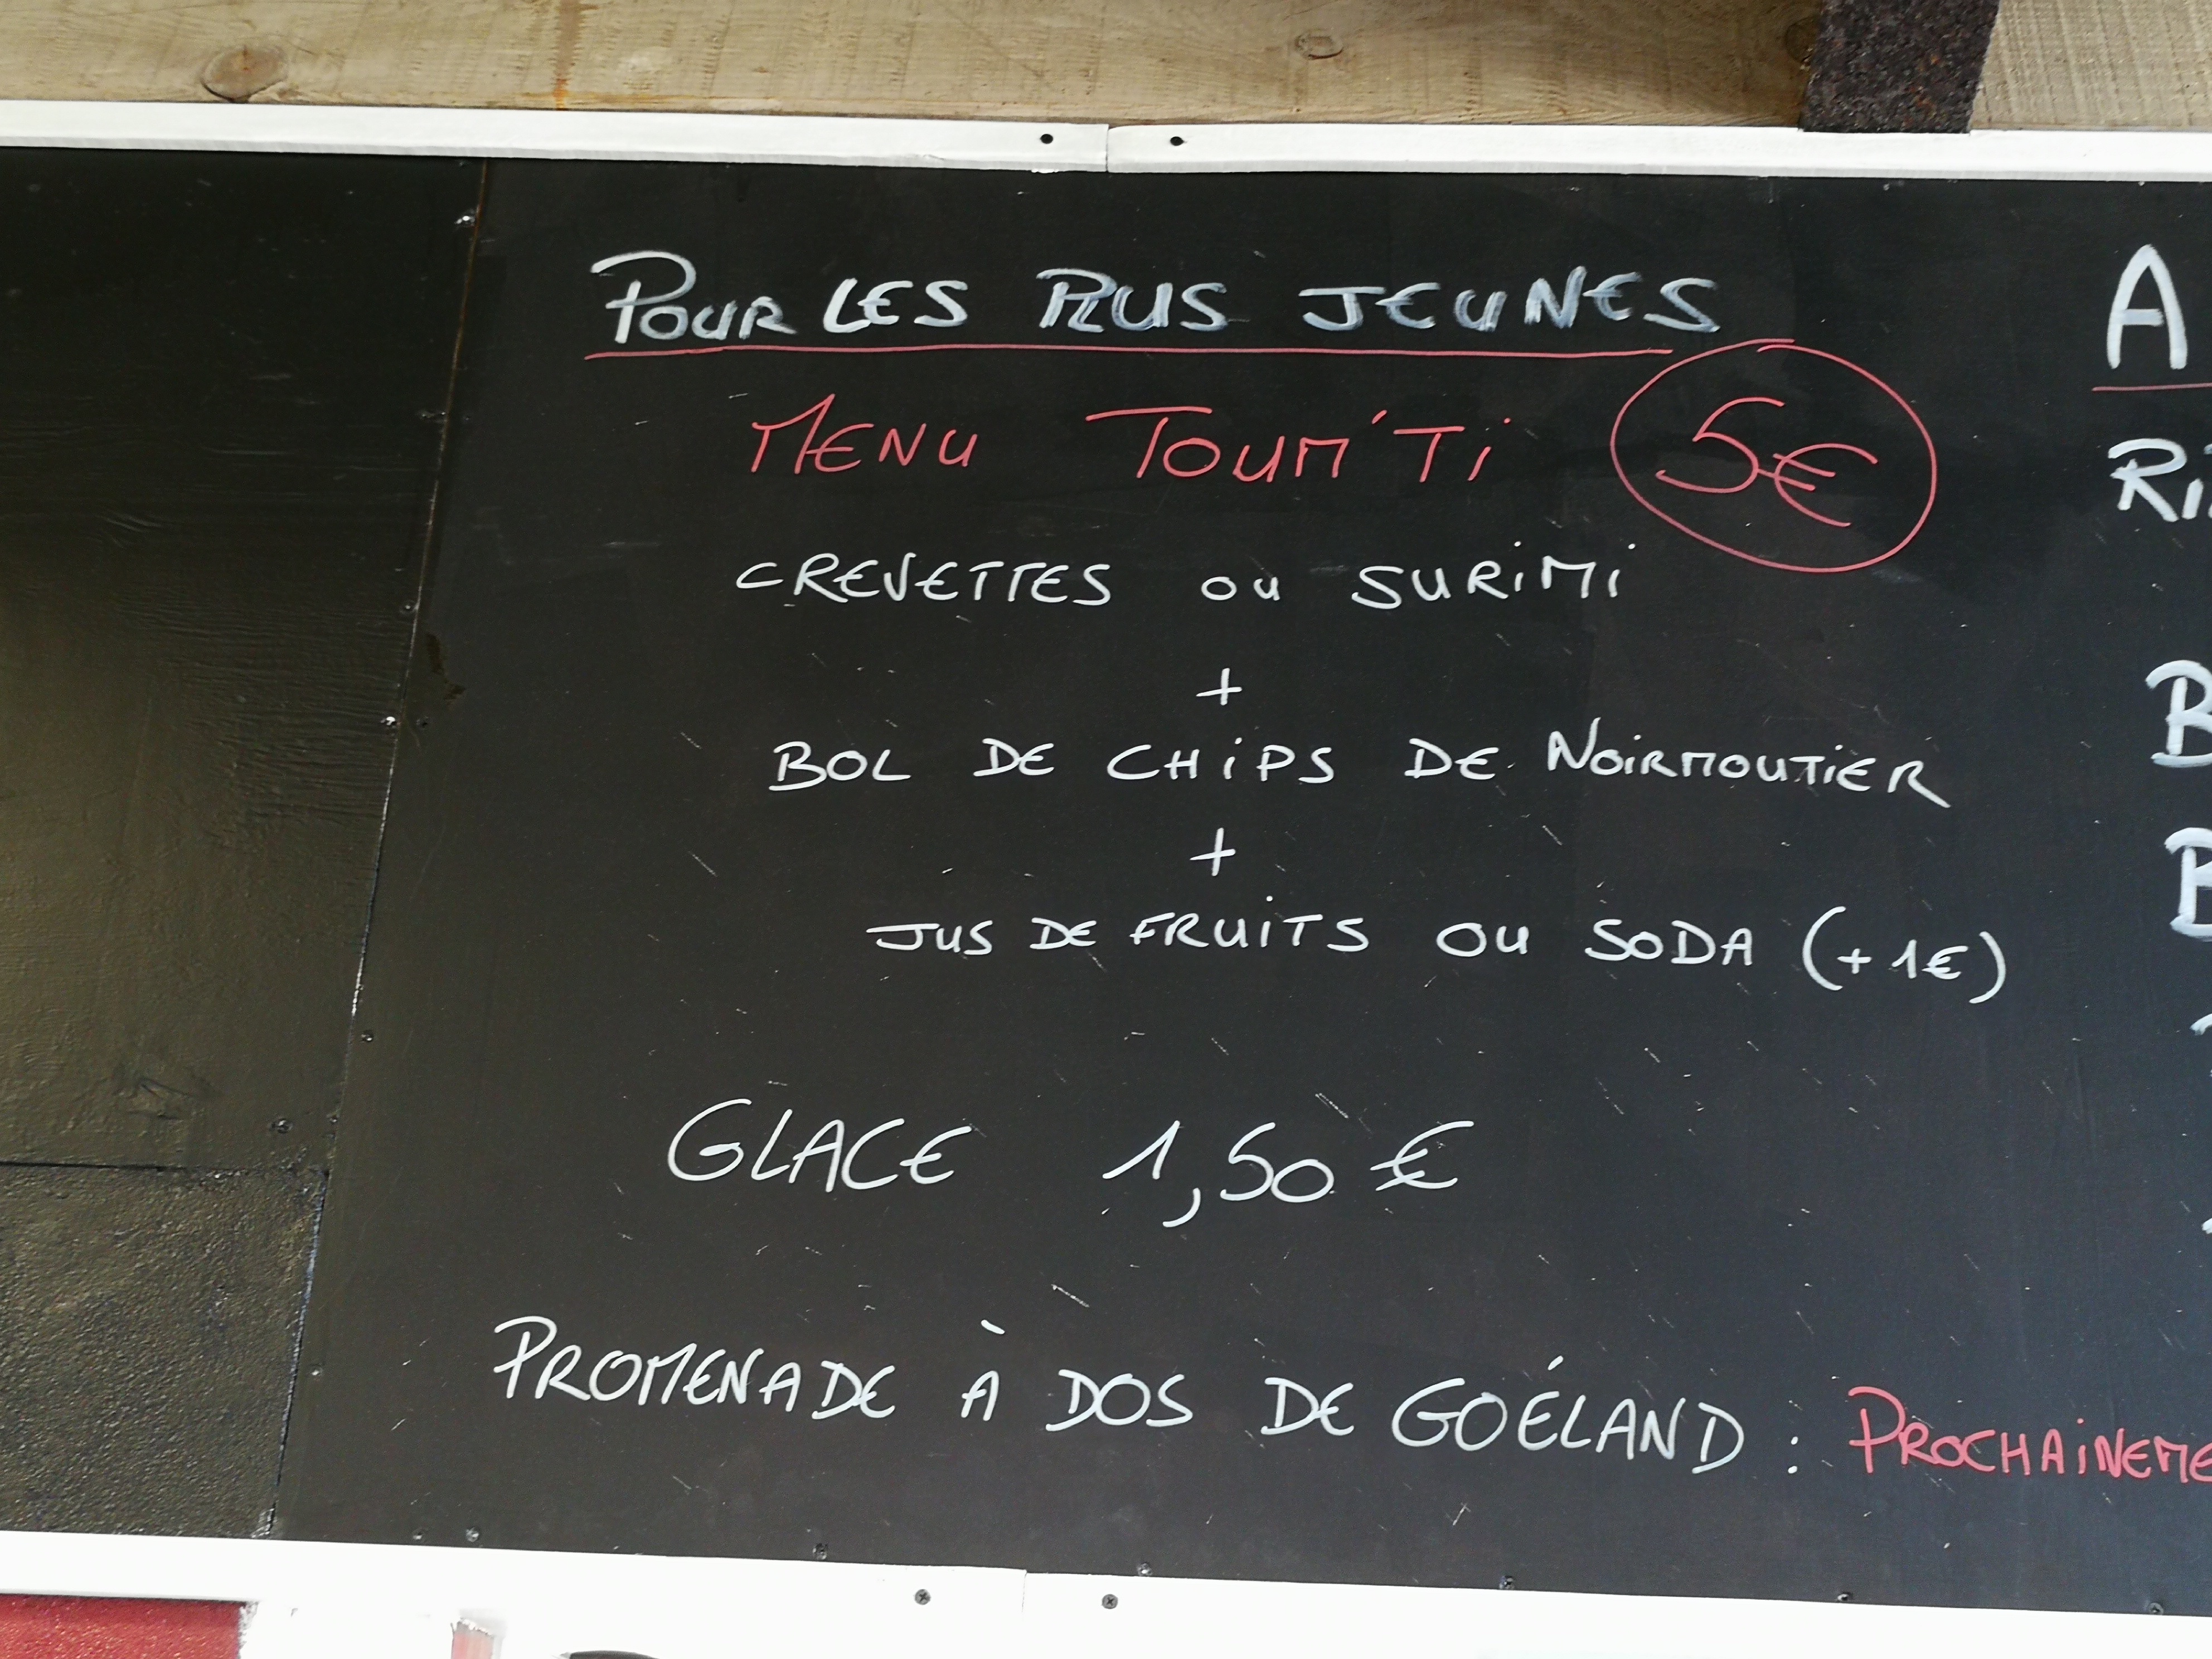 POUR LES PLUS JEUNES
MENU TOUM'TI 5€
CREVETTES OU SURIMI
+
BOL DE CHIPS DE NOIRMOUTIER
+
JUS DE FRUITS OU SODA (+1€)
GLACE 1,50 €
PROMENADE À DOS DE GOÉLAND : PROCHAINEME
A
RI
B
B